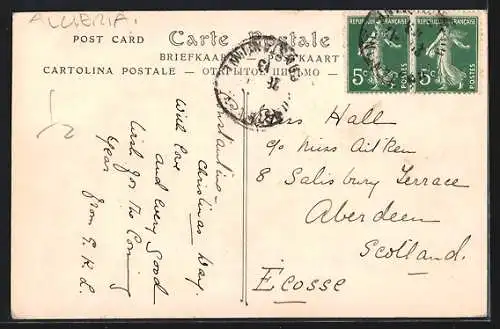 ALGERIA.
POST CARD Carte Postale
BRIEFKAART — POSTKAART
CARTOLINA POSTALE — ОТКРЫТОЕ ПИСЬМО
REPUBLIQUE FRANÇAISE
5c
POSTES
REPUBLIQUE FRANÇAISE
5c
POSTES
CONSTANTINE
Constantine
Christmas Day.
With love
and every good
wish for the Coming
Year from E.R.L.
Hall
c/o Miss Aitken
8 Salisbury Terrace
Aberdeen
Scotland.
Ecosse
12